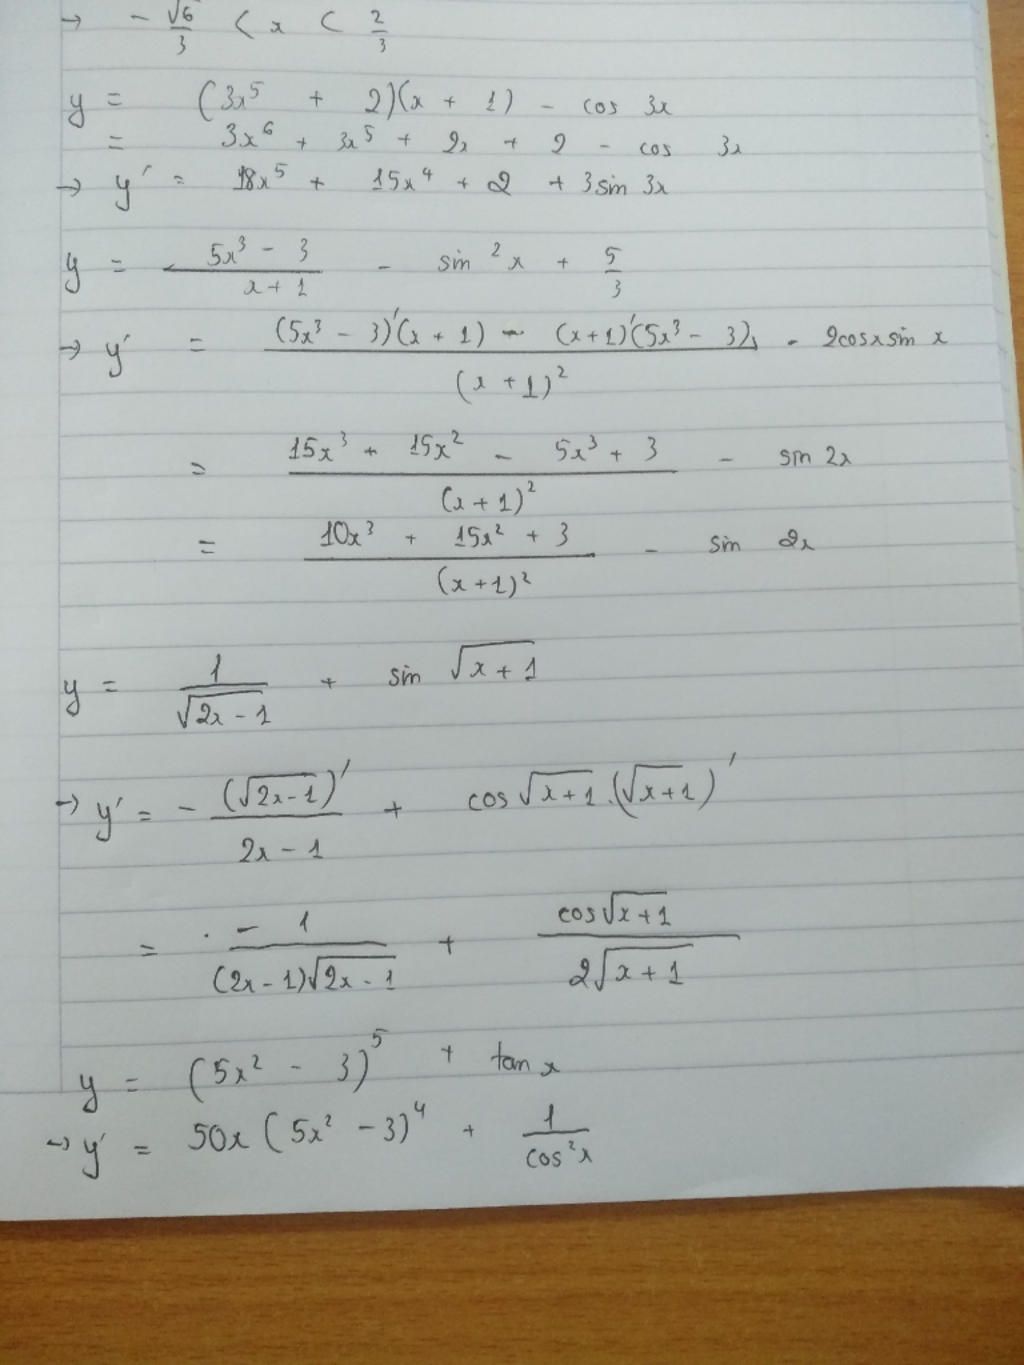 → - √6/3 < x < 2/3
y = (3x⁵ + 2)(x + 1) - cos 3x
= 3x⁶ + 3x⁵ + 2x + 2 - cos 3x
→ y' = 18x⁵ + 15x⁴ + 2 + 3sin 3x
y = (5x³ - 3)/(x + 1) - sin²x + 5/3
→ y' = ((5x³ - 3)'(x + 1) - (x+1)'(5x³ - 3))/(x + 1)² - 2cosx sin x
= (15x³ + 15x² - 5x³ + 3)/(x + 1)² - sin 2x
= (10x³ + 15x² + 3)/(x+1)² - sin 2x
y = 1/√(2x - 1) + sin √(x + 1)
→ y' = - (√(2x-1))'/(2x - 1) + cos√(x+1).(√(x+1))'
= - 1/((2x-1)√(2x-1)) + cos√(x+1)/(2√(x+1))
y = (5x² - 3)⁵ + tan x
→ y' = 50x(5x² - 3)⁴ + 1/cos²x